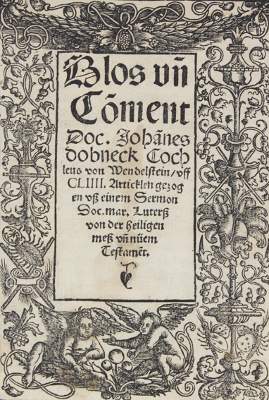 Glos vñ
Cõment
Doc. Johãnes
dobneck Coch
leus von Wendelstein/ vff
CLIIII. Articklen gezog
en vß einem Sermon
Doc. mar. Luterß
von der heiligen
meß vñ nüem
Testamẽt.